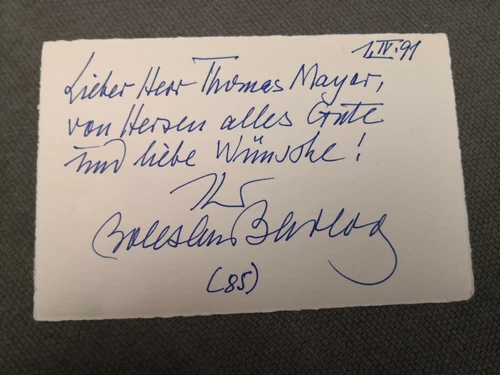 1.IV.91
Lieber Herr Thomas Mayer,
von Herzen alles Gute
und liebe Wünsche!
Ihr
Boleslaw Barlog
(85)